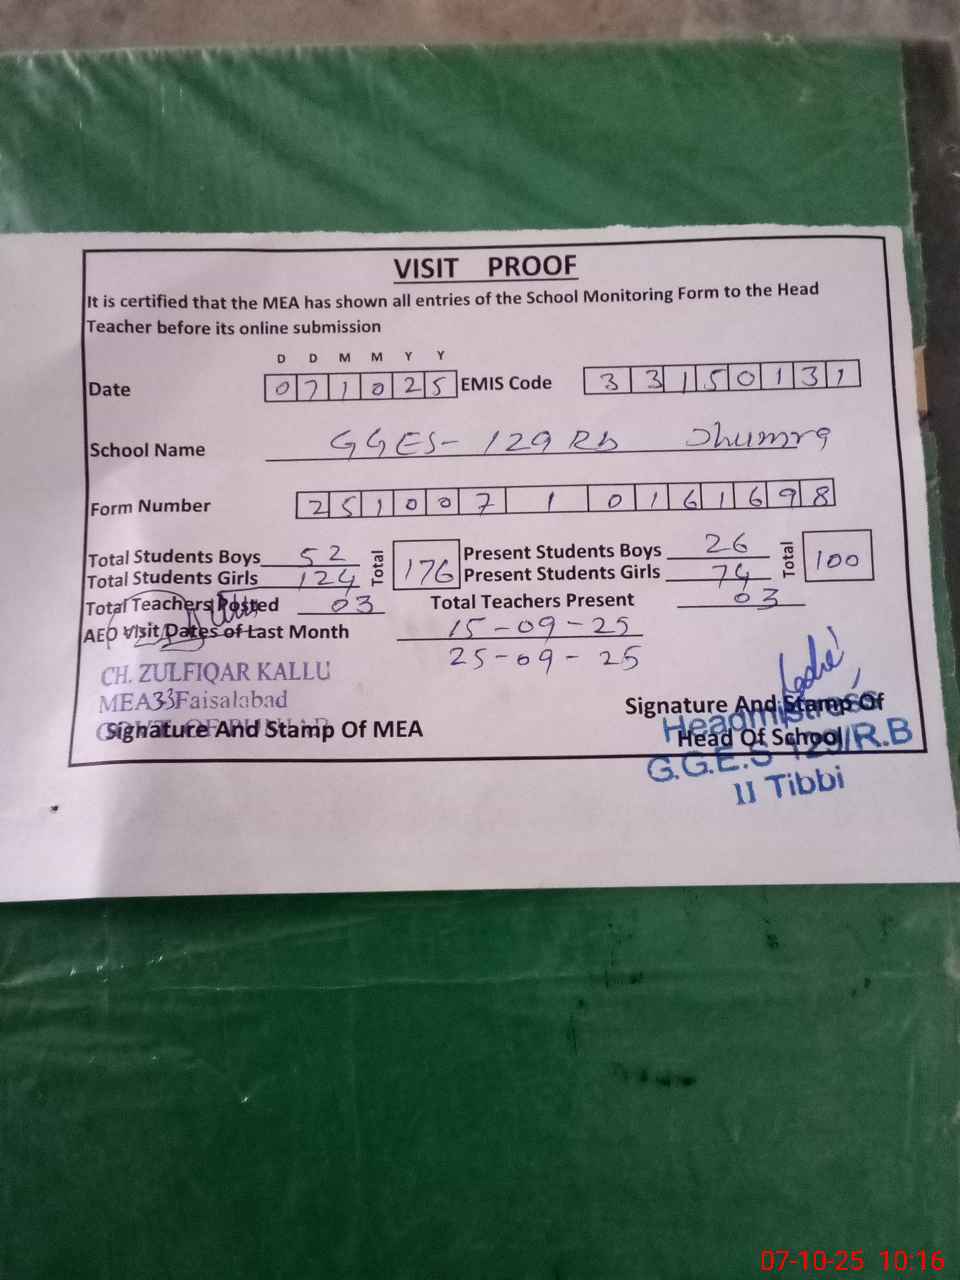 VISIT PROOF
It is certified that the MEA has shown all entries of the School Monitoring Form to the Head
Teacher before its online submission
D D M M Y Y
Date 071025 EMIS Code 33150131
School Name GGES- 129 RB Jhumra
Form Number 251007 1 0161698
Total Students Boys 52 Total 176 Present Students Boys 26 Total 100
Total Students Girls 124 Present Students Girls 74
Total Teachers Posted 03 Total Teachers Present 03
AEO Visit Dates of Last Month 15-09-25
25-09-25
CH. ZULFIQAR KALLU
MEA33 Faisalabad
GOVT. OF PUNJAB
Signature And Stamp Of MEA
Signature And Stamp Of
Head Of School
Headmistress
G.G.E.S 129/R.B
II Tibbi
07-10-25 10:16